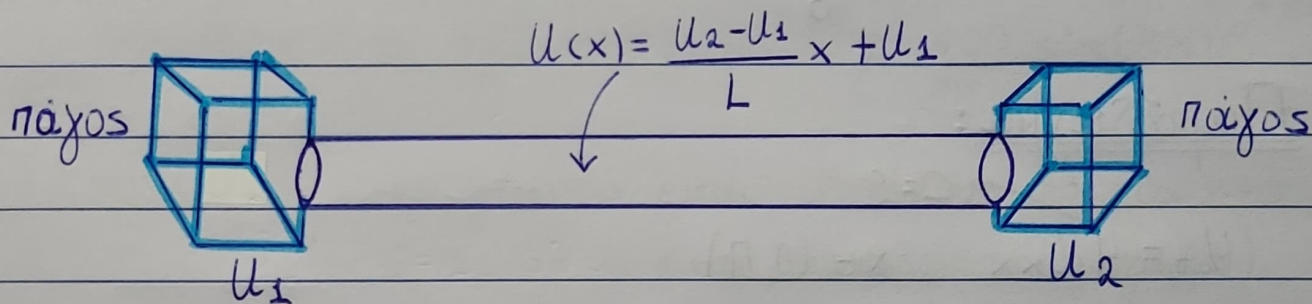 U(x) = \frac{U_2 - U_1}{L} x + U_1
πάγος
πάγος
U_1
U_2